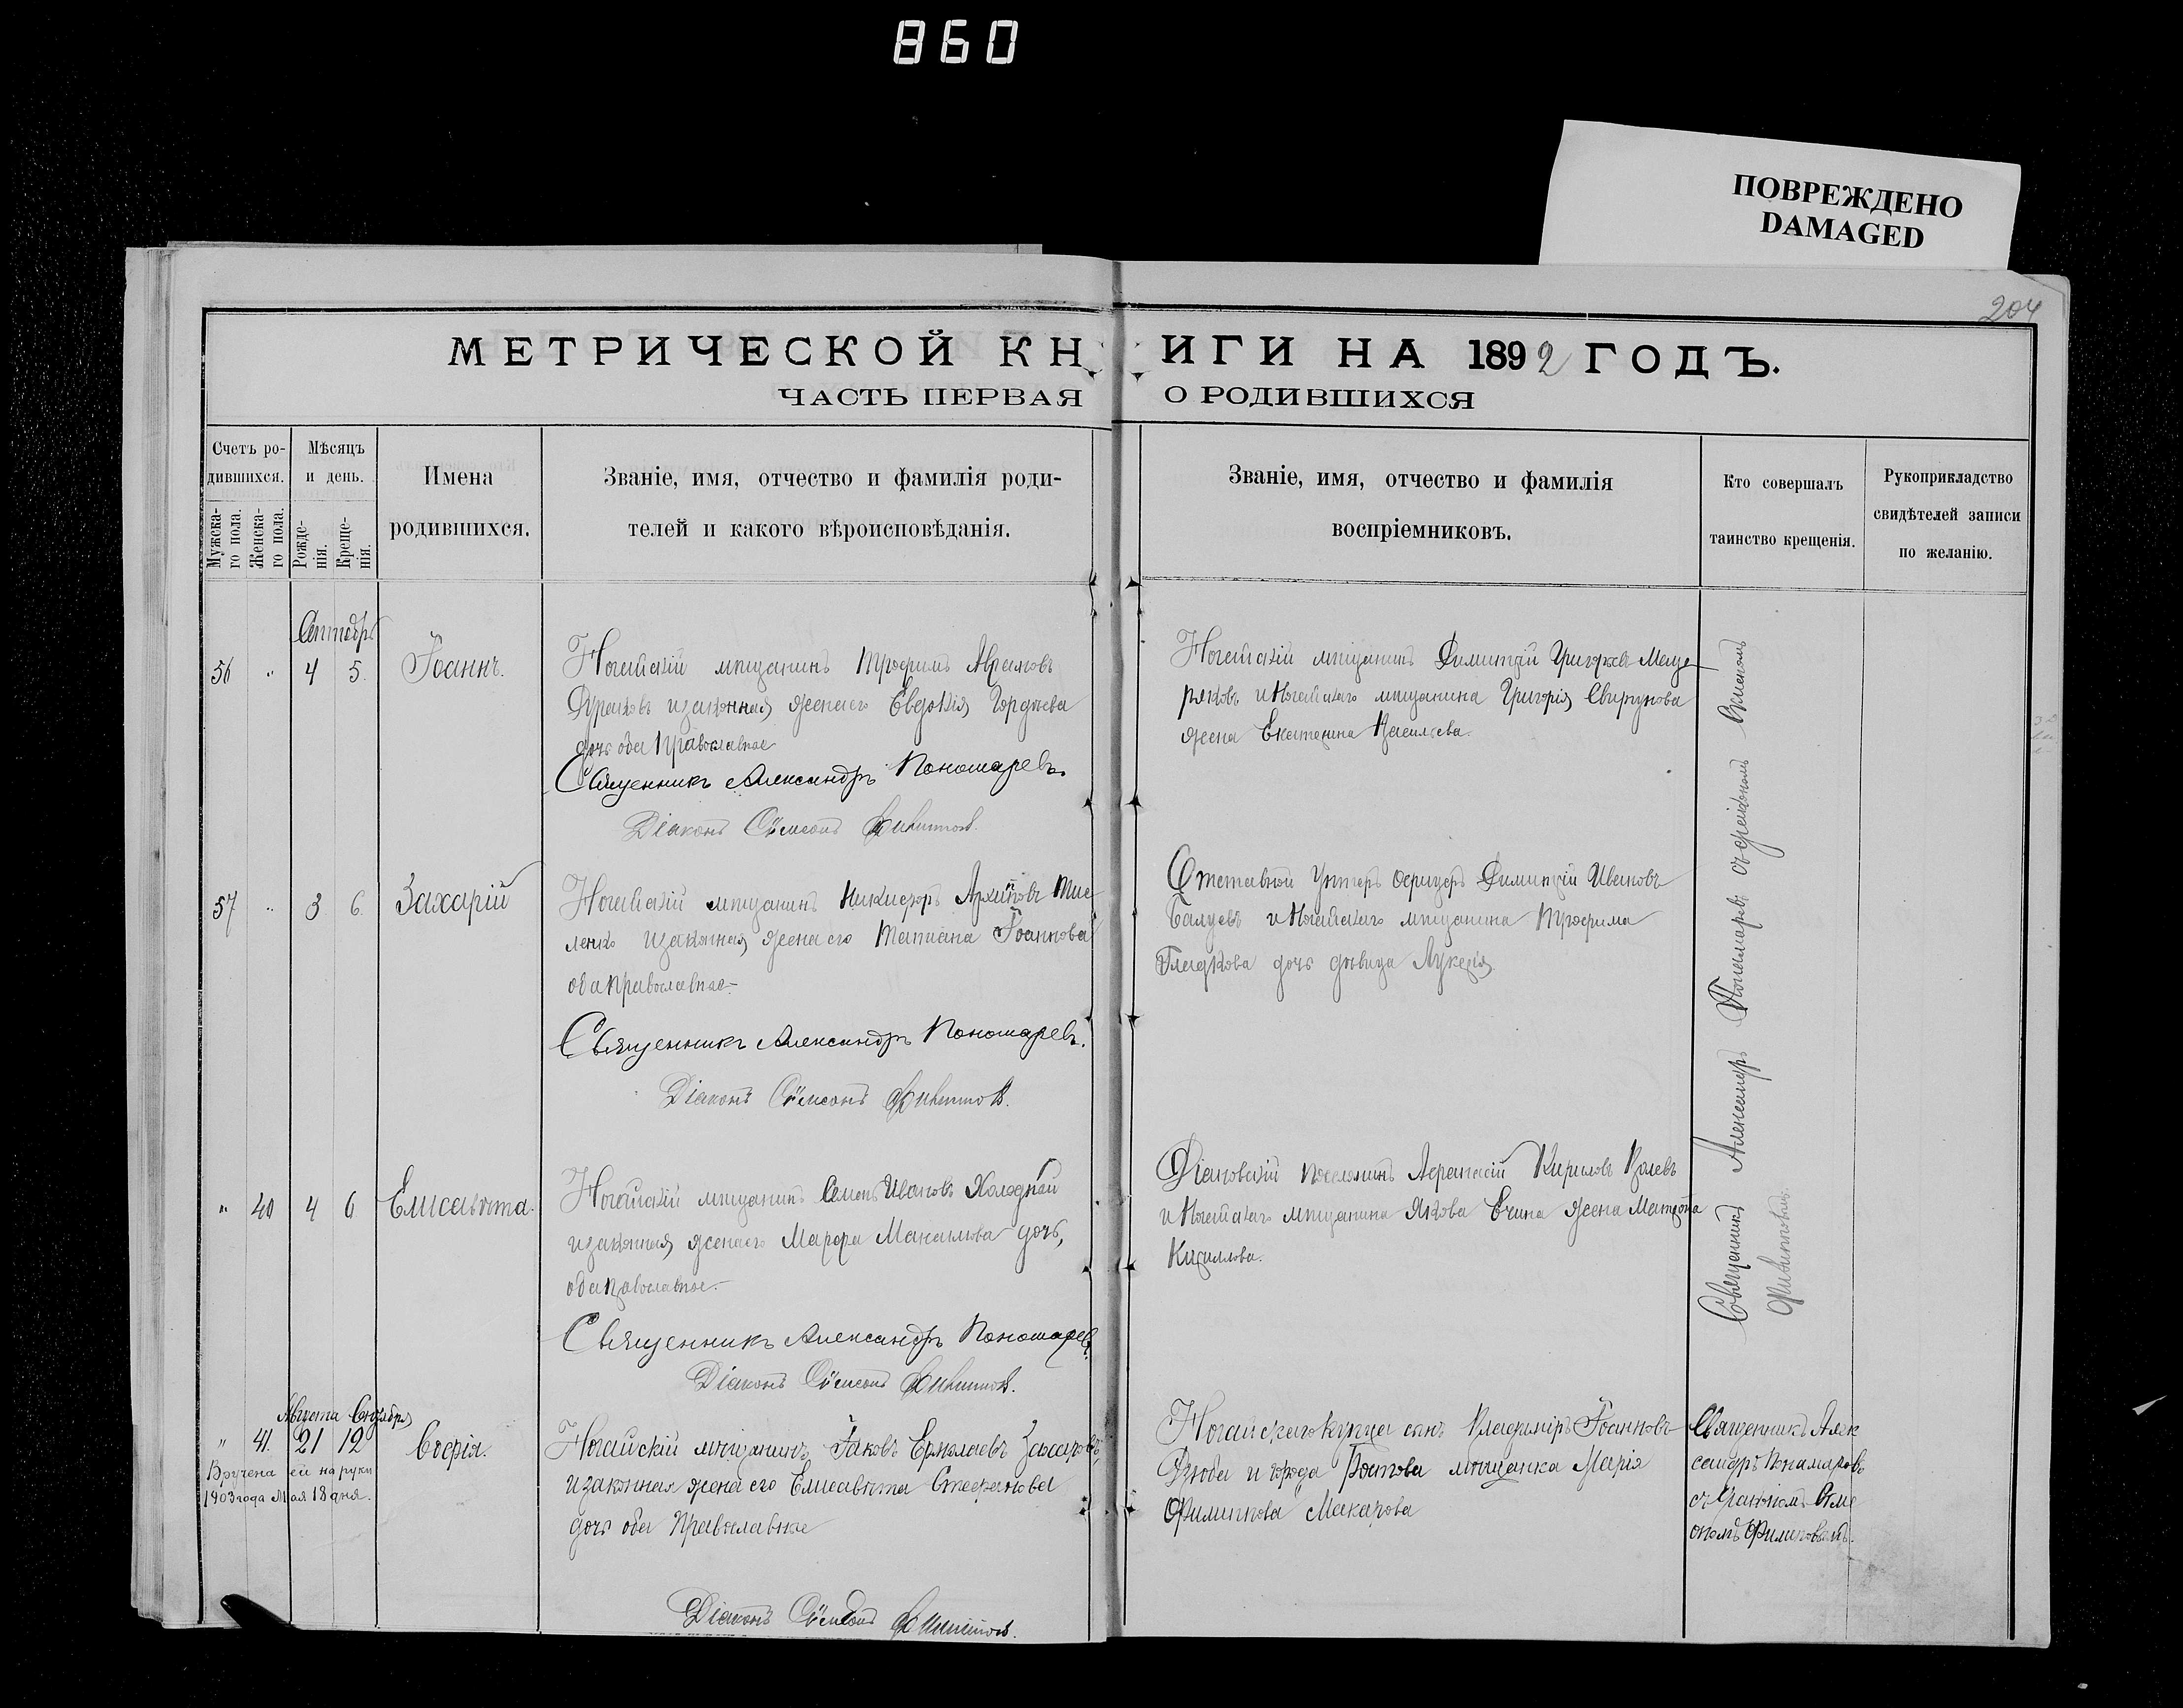 860
ПОВРЕЖДЕНО
DAMAGED
204
МЕТРИЧЕСКОЙ КНИГИ НА 1892 ГОДЪ.
ЧАСТЬ ПЕРВАЯ О РОДИВШИХСЯ
Счетъ ро-
дившихся.
Мужска-
го пола.
Женска-
го пола.
Мѣсяцъ
и день.
Рожде-
нія.
Креще-
нія.
Имена
родившихся.
Званіе, имя, отчество и фамилія роди-
телей и какого вѣроисповѣданія.
Званіе, имя, отчество и фамилія
воспріемниковъ.
Кто совершалъ
таинство крещенія.
Рукоприкладство
свидѣтелей записи
по желанію.
56 " 4 5. Іоаннъ.
Ногайскій мѣщанинъ Трофимъ
и законная жена его Евдокія Гордѣева
дочь оба Православные
Священникъ Александръ Пономаревъ.
Діаконъ Сѵмеонъ
Ногайскій мѣщанинъ Димитрій Григорьевъ Меще
ряковъ и Ногайскаго мѣщанина Григорія
жена Екатерина Васильева.
57 " 3 6. Захарій
Ногайскій мѣщанинъ Никифоръ Архиповъ
ленко и законная жена его Татіана Іоаннова
оба православные
Священникъ Александръ Пономаревъ.
Діаконъ Сѵмеонъ
Отставной Унтеръ Офицеръ Димитрій Ивановъ
и Ногайскаго мѣщанина Трофима
Гладкова дочь дѣвица Лукерія
" 40 4 6 Елисавѣта.
Ногайскій мѣщанинъ Семенъ Ивановъ Холодный
и законная жена его Марфа Мануилова дочь,
оба православные.
Священникъ Александръ Пономаревъ
Діаконъ Сѵмеонъ
поселянинъ Афанасій Кириловъ
и Ногайскаго мѣщанина Якова жена Матрона
Кириллова.
Священникъ Александръ Пономаревъ съ діакономъ
Филипповымъ.
Августа
" 41. 21 12 Софія.
Вручена ей на руки
1903 года Мая 18 дня.
Ногайскій мѣщанинъ Іаковъ Ермолаевъ
и законная жена его Елисавѣта Стефанова
дочь оба Православные
Діаконъ Сѵмеонъ
Ногайскаго купца сынъ Владиміръ Іоанновъ
Дзюба и города Ростова мѣщанка Марія
Филиппова Макарова
Священникъ Алек
сандръ Пономаревъ
съ діакономъ Сѵме
ономъ Филиповымъ.